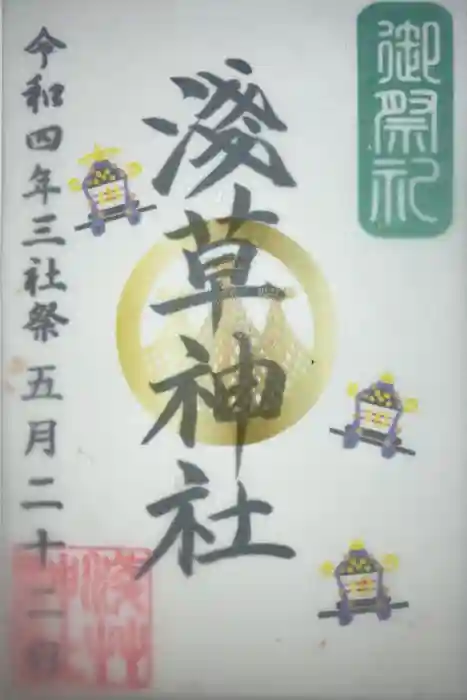 御祭礼
淺草神社
令和四年三社祭 五月二十二日